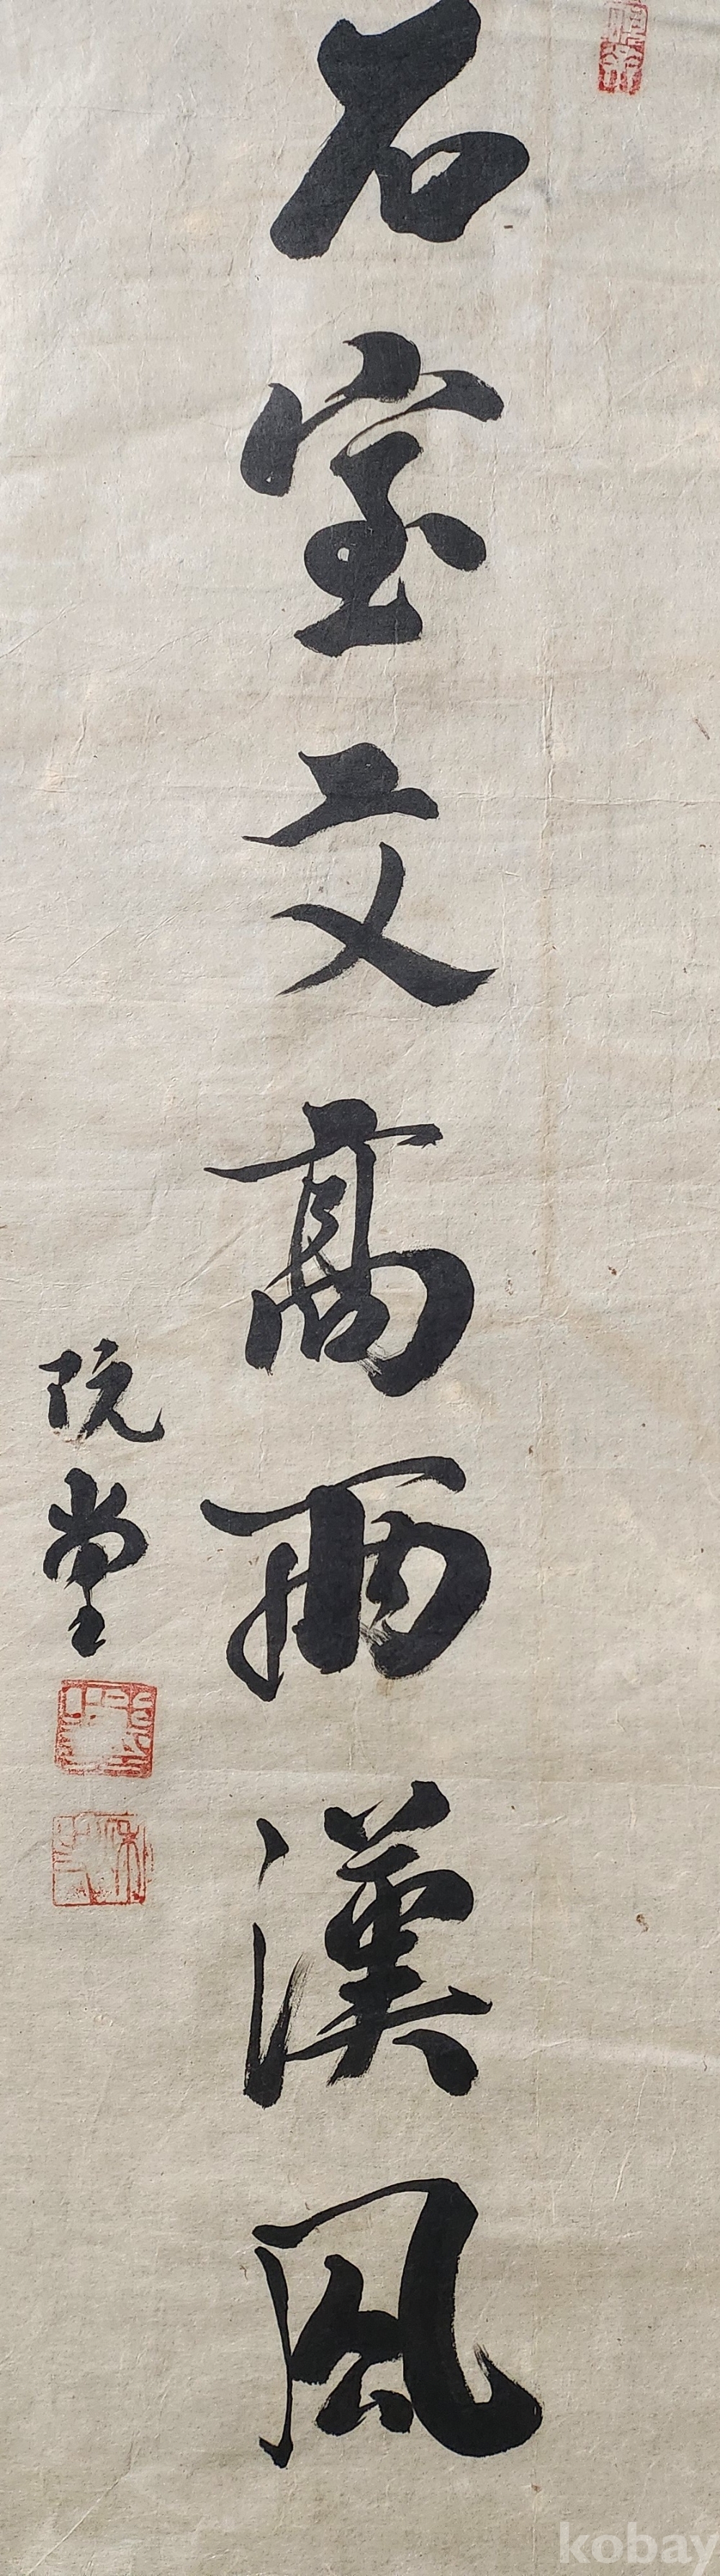 石室文高兩漢風
阮堂
kobay